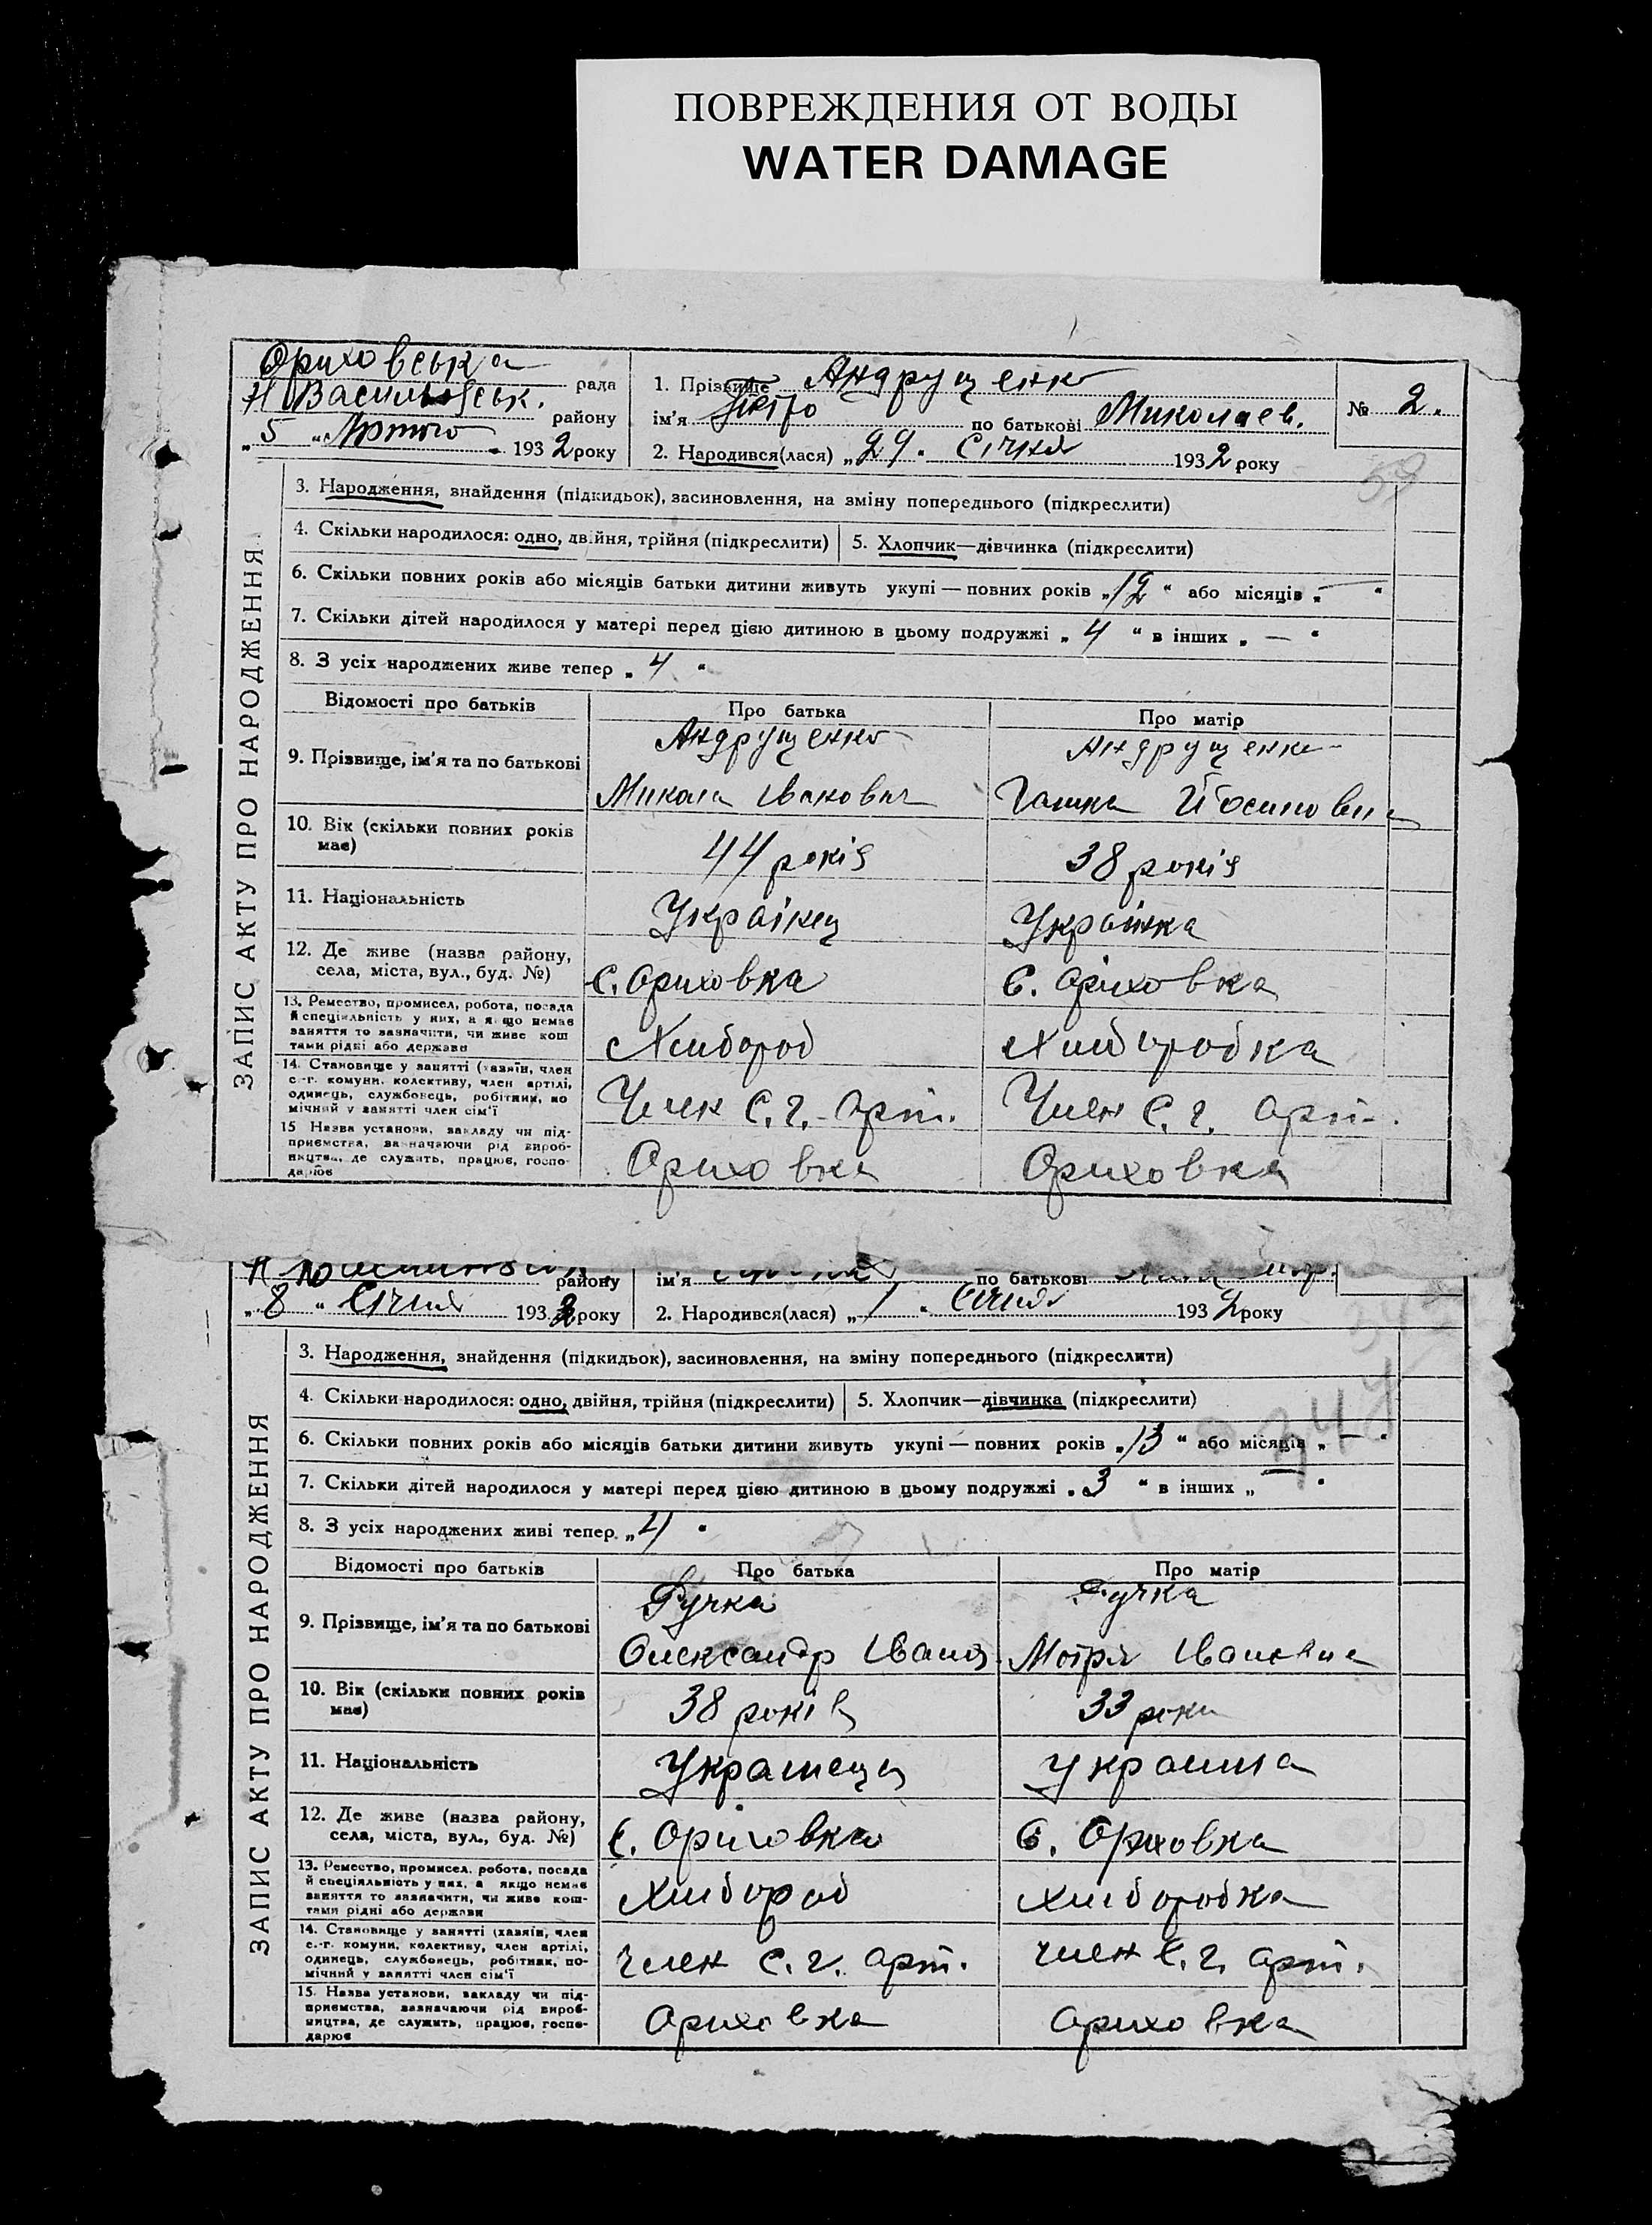 ПОВРЕЖДЕНИЯ ОТ ВОДЫ
WATER DAMAGE
Ориховська рада
Н Васильовськ. району
„5“ Лютого 1932 року
1. Прізвище Андрущенко
ім'я Петро по батькові Миколаев.
2. Народився(лася) „29. Січня 1932 року
№ 2.
59
ЗАПИС АКТУ ПРО НАРОДЖЕННЯ
3. Народження, знайдення (підкидьок), засиновлення, на зміну попереднього (підкреслити)
4. Скільки народилося: одно, двійня, трійня (підкреслити) 5. Хлопчик—дівчинка (підкреслити)
6. Скільки повних років або місяців батьки дитини живуть укупі — повних років „12“ або місяців „—“
7. Скільки дітей народилося у матері перед цією дитиною в цьому подружжі „4“ в інших „—“
8. З усіх народжених живе тепер „4“
Відомості про батьків Про батька Про матір
9. Прізвище, ім'я та по батькові Андрущенко Андрущенко
Микола Іванович Йосиповна
10. Вік (скільки повних років має) 44 років 38 років
11. Національність Українец Українка
12. Де живе (назва району, села, міста, вул., буд. №) с. Ориховка с. Ориховка
13. Ремество, промисел, робота, посада
й спеціяльність у них, а якщо немає
заняття то зазначити, чи живе кош
тами рідні або держави Хлибороб Хлиборобка
14. Становище у занятті (хазяїн, член
с.-г. комуни, колективу, член артілі,
одинець, службовець, робітник, по
мічний у занятті член сім'ї Член с. г. арт. Член с. г. арт.
15 Назва установи, закладу чи під-
приємства, зазначаючи рід вироб-
ництва, де служить, працює, госпо-
дарює Ориховка Ориховка
району
„8“ Січня 1932 року
ім'я по батькові
2. Народився(лася) „1“ Січня 1932 року
ЗАПИС АКТУ ПРО НАРОДЖЕННЯ
3. Народження, знайдення (підкидьок), засиновлення, на зміну попереднього (підкреслити)
4. Скільки народилося: одно, двійня, трійня (підкреслити) 5. Хлопчик—дівчинка (підкреслити)
6. Скільки повних років або місяців батьки дитини живуть укупі — повних років „13“ або місяців „—“
7. Скільки дітей народилося у матері перед цією дитиною в цьому подружжі „3“ в інших „—“
8. З усіх народжених живі тепер „4“
Відомості про батьків Про батька Про матір
9. Прізвище, ім'я та по батькові Ручка Ручка
Олександр Іванов. Мотря Івановна
10. Вік (скільки повних років має) 38 років 33 роки
11. Національність Українець Українка
12. Де живе (назва району, села, міста, вул., буд. №) с. Ориховка с. Ориховка
13. Ремество, промисел, робота, посада
й спеціяльність у них, а якщо немає
заняття то зазначити, чи живе кош-
тами рідні або держави Хлибороб Хлиборобка
14. Становище у занятті (хазяїн, член
с.-г. комуни, колективу, член артілі,
одинець, службовець, робітник, по-
мічний у занятті член сім'ї член с. г. арт. член с. г. арт.
15. Назва установи, закладу чи під-
приємства, зазначаючи рід вироб-
ництва, де служить, працює, госпо-
дарює Ориховка Ориховка